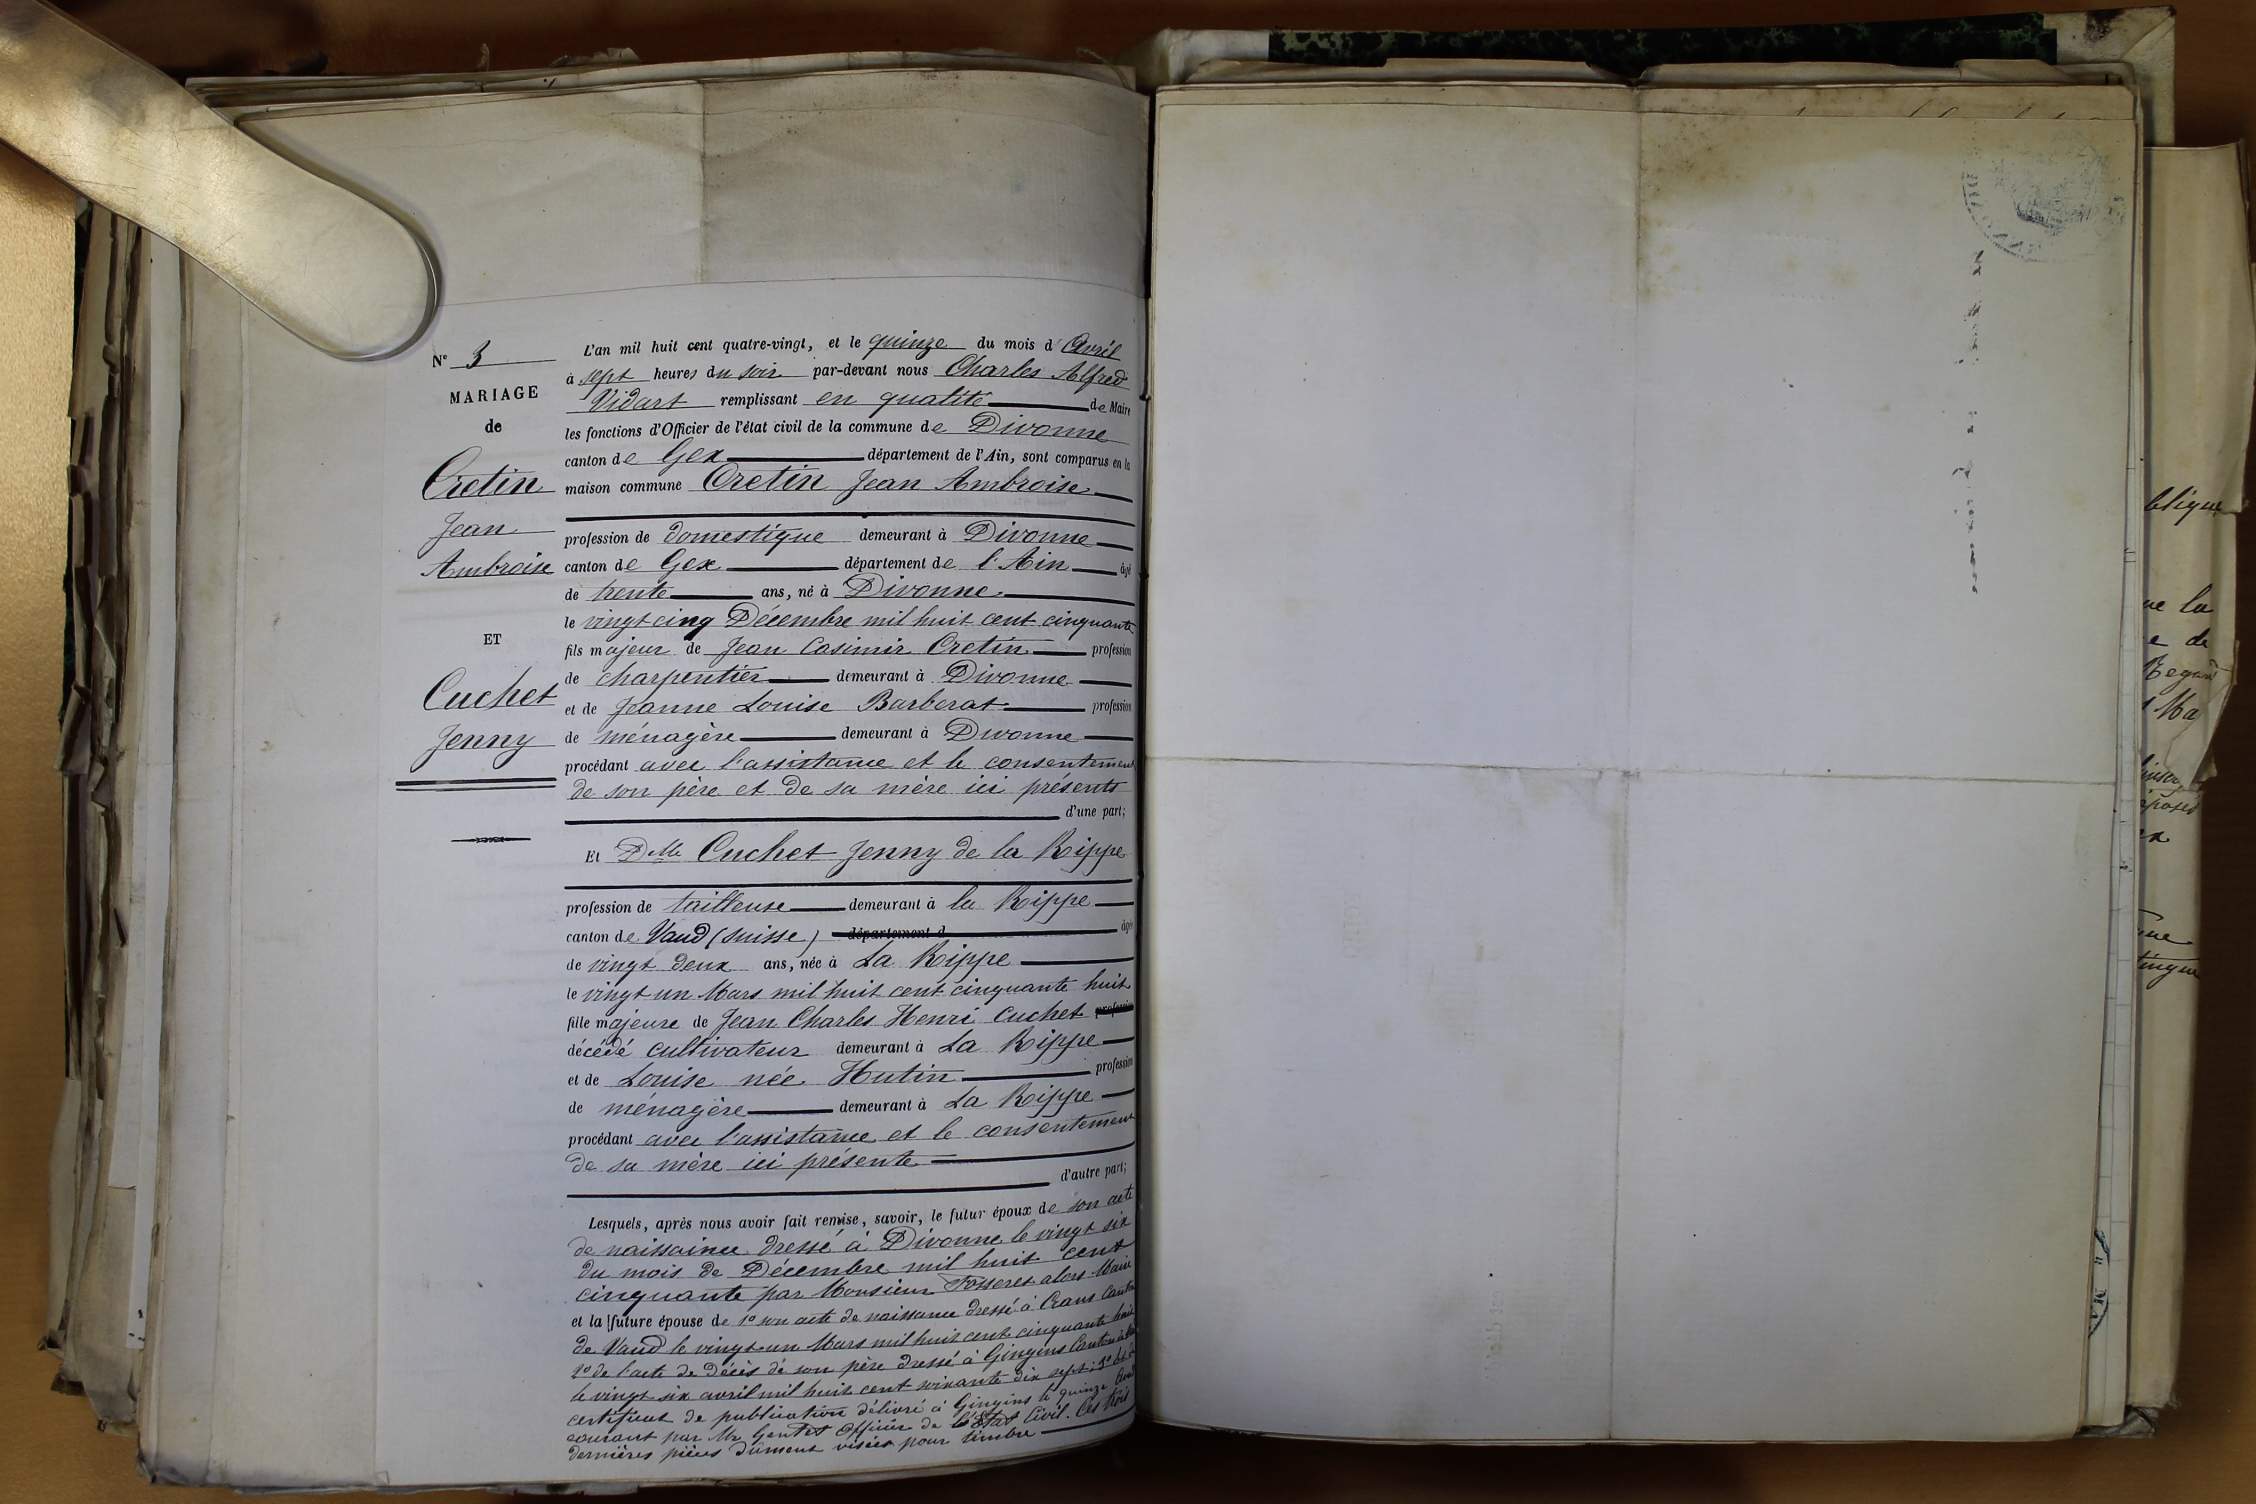 N° 3
MARIAGE
de
Cretin
Jean
Ambroise
ET
Cuchet
Jenny
L'an mil huit cent quatre-vingt, et le quinze du mois d'Avril
à sept heures du soir par-devant nous Charles Alfred
Vidart remplissant en qualité de Maire
les fonctions d'Officier de l'état civil de la commune de Divonne
canton de Gex département de l'Ain, sont comparus en la
maison commune Cretin Jean Ambroise
profession de domestique demeurant à Divonne
canton de Gex département de l'Ain âgé
de trente ans, né à Divonne
le vingt cinq Décembre mil huit cent cinquante
fils majeur de Jean Casimir Cretin profession
de charpentier demeurant à Divonne
et de Jeanne Louise Barberat profession
de ménagère demeurant à Divonne
procédant avec l'assistance et le consentement
de son père et de sa mère ici présents
d'une part;
Et Dlle Cuchet Jenny de la Rippe
profession de tailleuse demeurant à la Rippe
canton de Vaud (suisse) département d âgée
de vingt deux ans, née à La Rippe
le vingt un Mars mil huit cent cinquante huit
fille majeure de Jean Charles Henri Cuchet profession
décédé cultivateur demeurant à La Rippe
et de Louise née Hutin profession
de ménagère demeurant à La Rippe
procédant avec l'assistance et le consentement
de sa mère ici présente
d'autre part;
Lesquels, après nous avoir fait remise, savoir, le futur époux de son acte
de naissaince dressé à Divonne le vingt six
du mois de Décembre mil huit cent
cinquante par Monsieur Fosseret alors Maire
et la future épouse de 1° son acte de naissance dressé à Crans Canton
de Vaud le vingt-un Mars mil huit cent cinquante huit
2° de l'acte de Décès de son père dressé à Gingins Canton
le vingt six avril mil huit cent soixante dix sept; 3°
certificat de publication délivré à Gingins le quinze Avril
courant par Mr Gentet Officier de l'Etat Civil. Ces trois
dernières pièces dûment visées pour timbre
blique
ue la
e de
Regard
Ma
posés
ingue